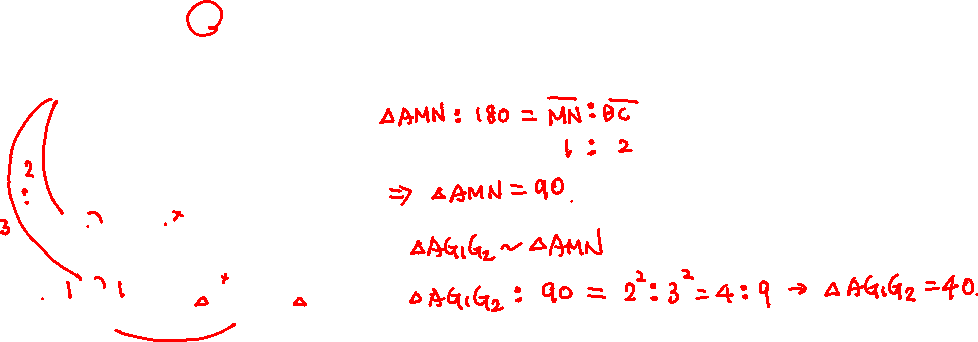 △AMN : 180 = M̅N̅ : B̅C̅
1 : 2
⇒ △AMN = 90.
2
:
3
△AG₁G₂ ∼ △AMN
1 1
△AG₁G₂ : 90 = 2² : 3² = 4 : 9 → △AG₁G₂ = 40.